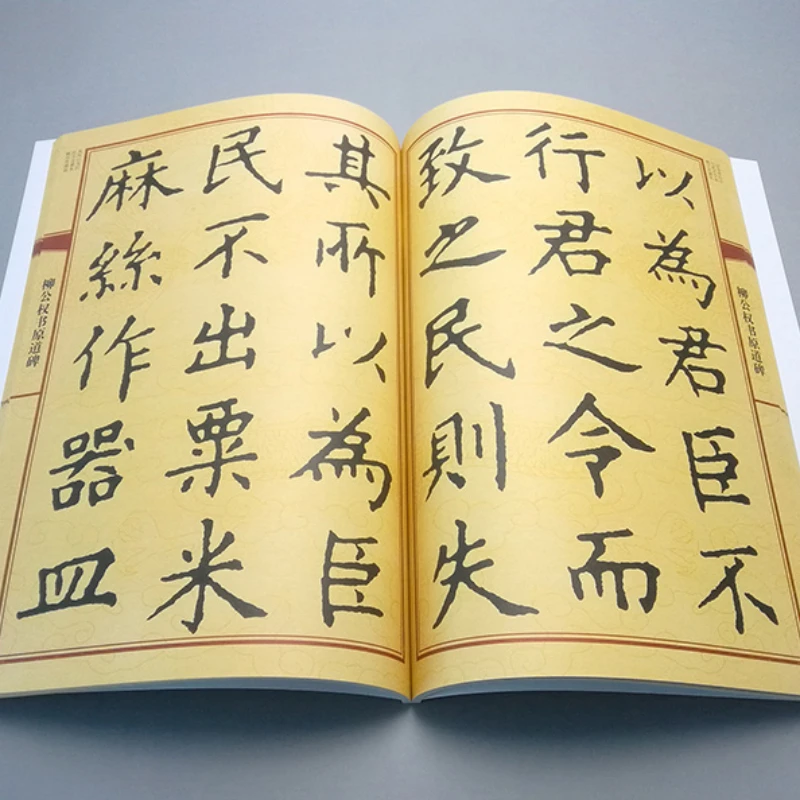 柳公权书原道碑
以為君臣不
行君之令而
致之民則失
其所以為臣
民不出粟米
麻絲作器皿
柳公权书原道碑